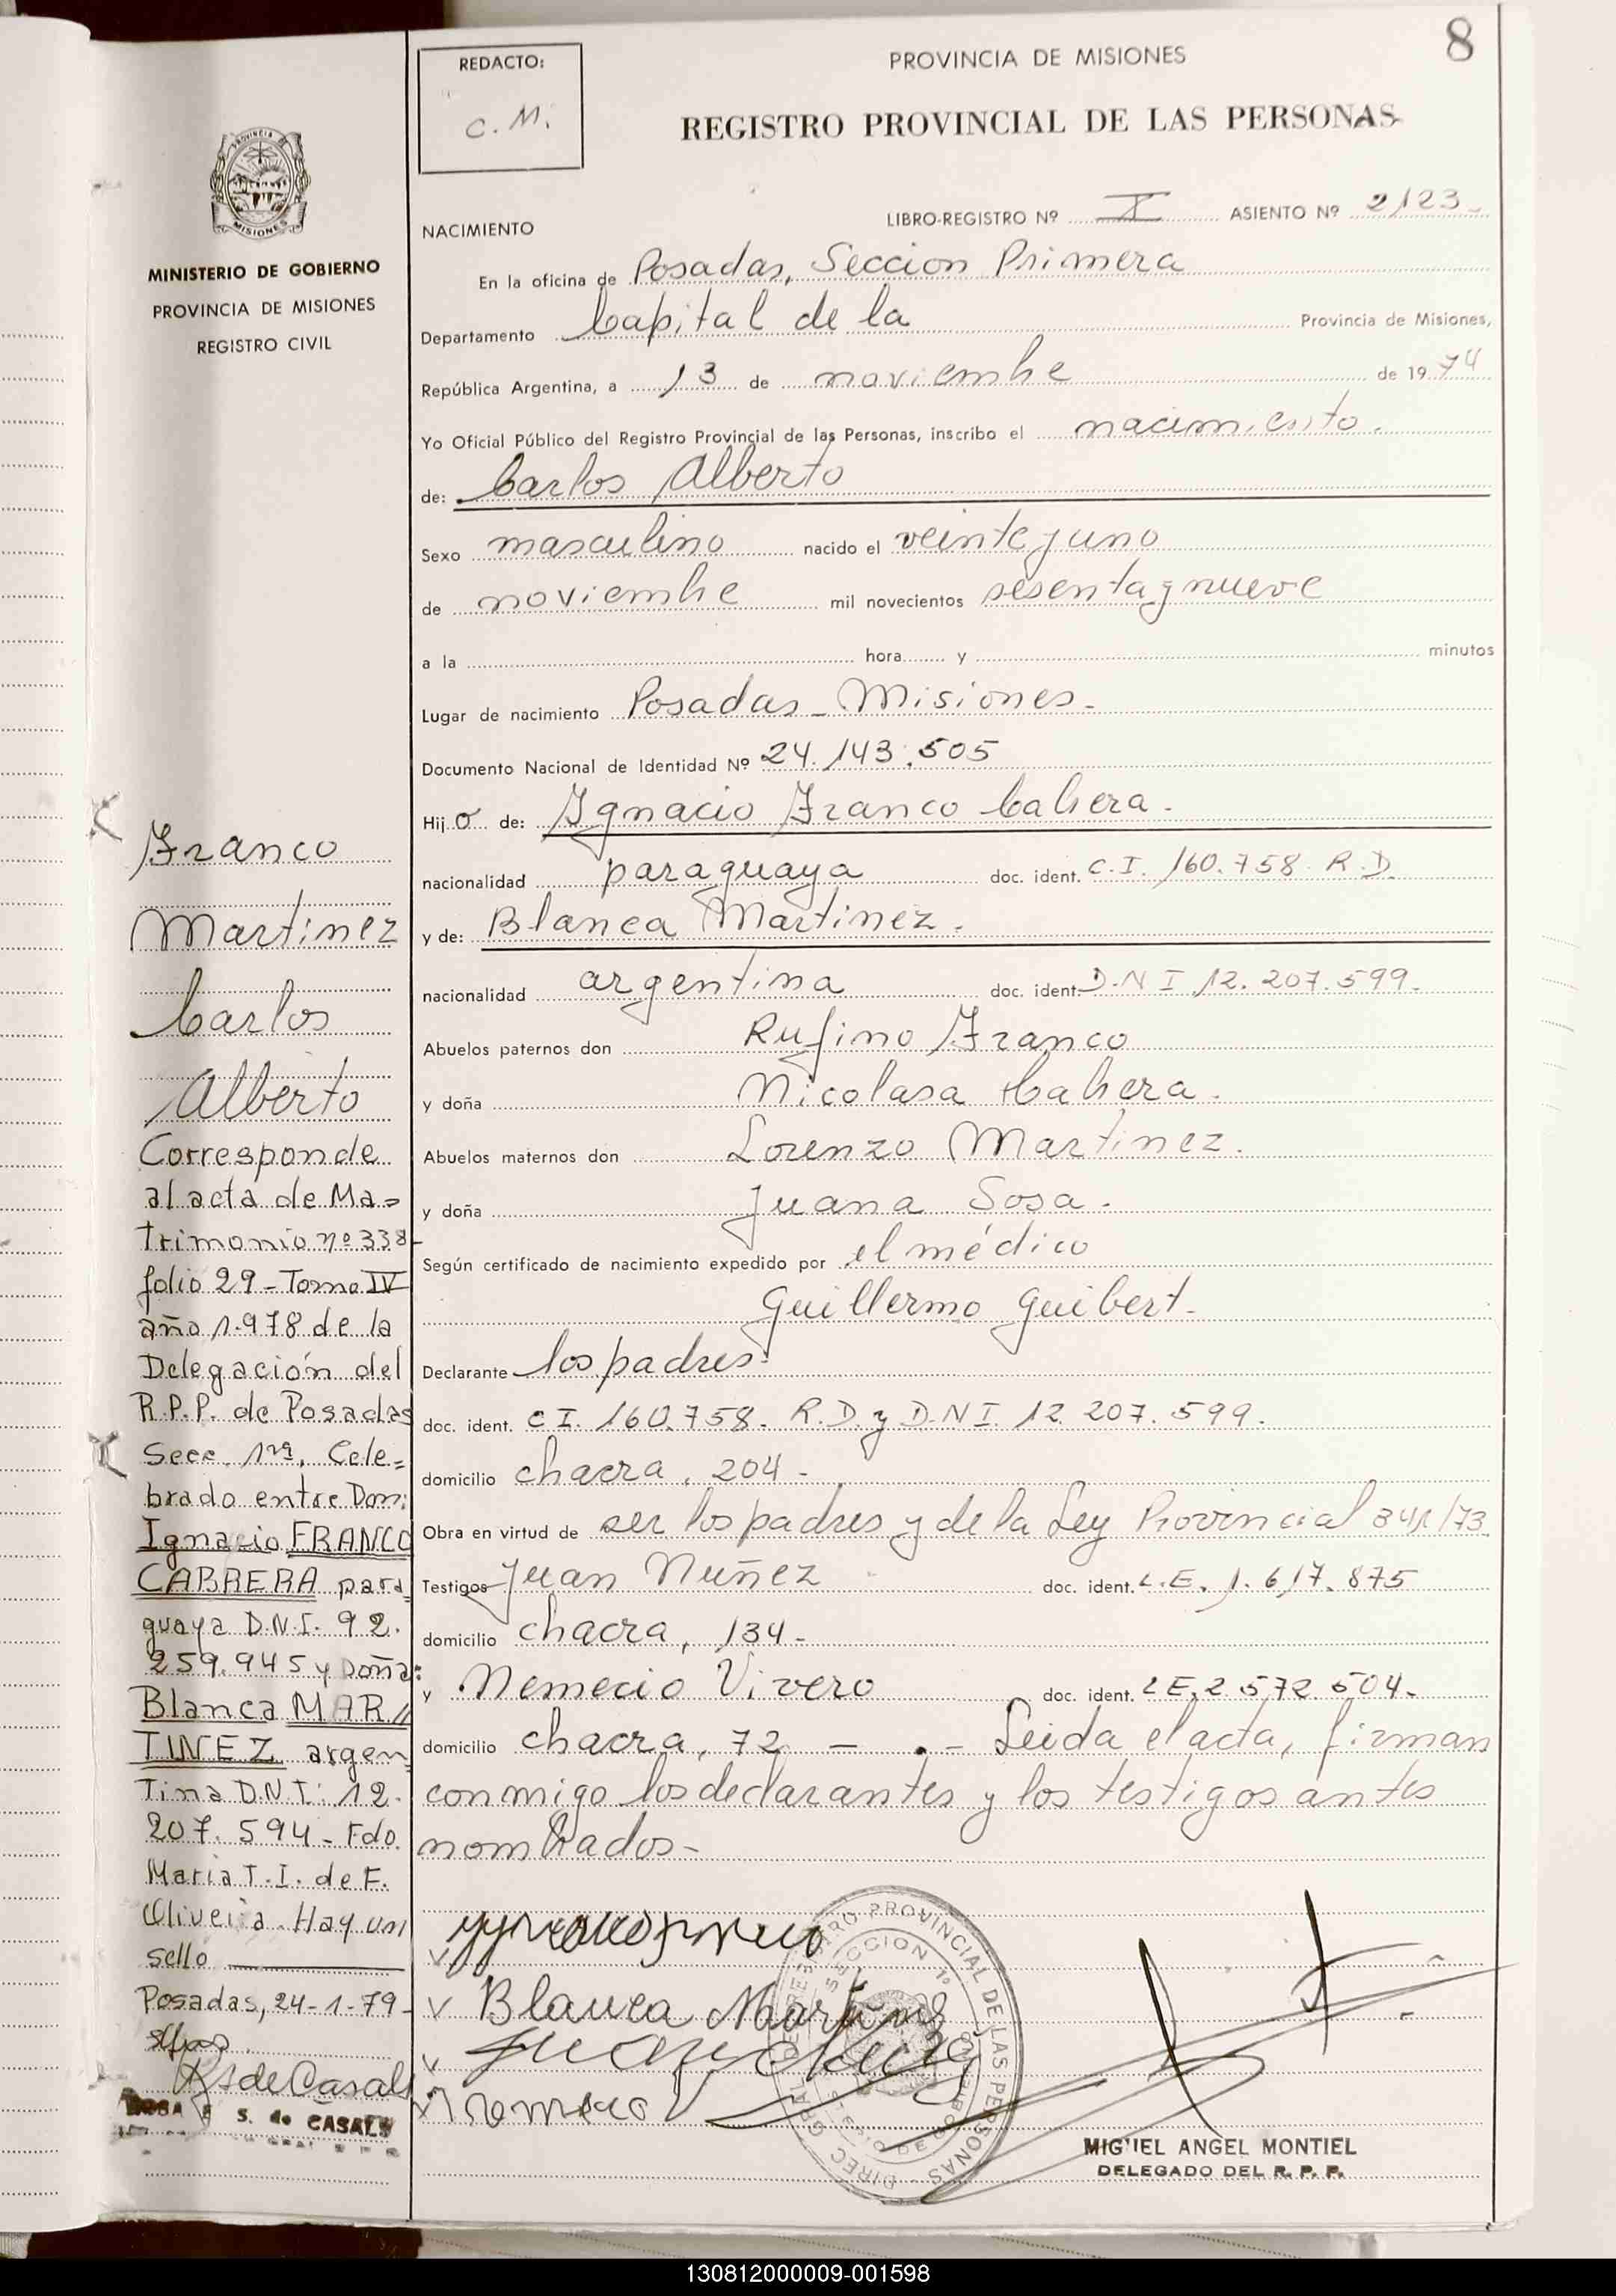 8
REDACTO:
C. M.
PROVINCIA DE MISIONES
REGISTRO PROVINCIAL DE LAS PERSONAS
MISIONES
MINISTERIO DE GOBIERNO
PROVINCIA DE MISIONES
REGISTRO CIVIL
NACIMIENTO
LIBRO-REGISTRO Nº X ASIENTO Nº 2123-
En la oficina de Posadas, Seccion Primera
Departamento Capital de la Provincia de Misiones,
República Argentina, a 13 de noviembre de 1974
Yo Oficial Público del Registro Provincial de las Personas, inscribo el nacimiento.
de: Carlos Alberto
Sexo masculino nacido el veinte y uno
de noviembre mil novecientos sesenta y nueve
a la hora y minutos
Lugar de nacimiento Posadas - Misiones-
Documento Nacional de Identidad Nº 24.143.505
Hijo de: Ignacio Franco Cabrera.
nacionalidad paraguaya doc. ident. C.I. 160.758. R.D.
y de: Blanca Martinez.
nacionalidad argentina doc. ident. D.N I 12.207.599.
Abuelos paternos don Rufino Franco
y doña Nicolasa Cabrera.
Abuelos maternos don Lorenzo Martinez.
y doña Juana Sosa.
Según certificado de nacimiento expedido por el médico
Guillermo Guibert-
Declarante los padres.
doc. ident. C I. 160.758. R.D. y D.N I. 12.207.599.
domicilio chacra. 204-
Obra en virtud de ser los padres y de la Ley Provincial 341/73
Testigos Juan Nuñez doc. ident. L.E. 1.617.875
domicilio chacra, 134-
y Nemecio Vivero doc. ident. L E. 2.572.504-
domicilio chacra, 72 - . - Leida el acta, firman
conmigo los declarantes y los testigos antes
nombrados-
Franco
Martinez
Carlos
Alberto
Corresponde
al acta de Ma=
trimonio nº 338-
folio 29-Tomo IV
año 1.978 de la
Delegación del
R.P.P. de Posadas
Secc. 1ra. Cele=
brado entre Don:
Ignacio FRANCO
CABRERA para=
guaya D.N.I. 92.
259.945 y Doña:
Blanca MAR//
TINEZ argen=
Tina D.N.I: 12.
207.594- Fdo.
Maria T. I. de F.
Oliveira. Hay un
sello
Posadas, 24-1-79-
RS de Casals
ROSA S. de CASALS
Blanca Martinez
Juan Nuñez
Nemecio V
DIREC. GRAL. DE REGISTRO PROVINCIAL DE LAS PERSONAS
SECCION 1º
MIGUEL ANGEL MONTIEL
DELEGADO DEL R. P. P.
130812000009-001598